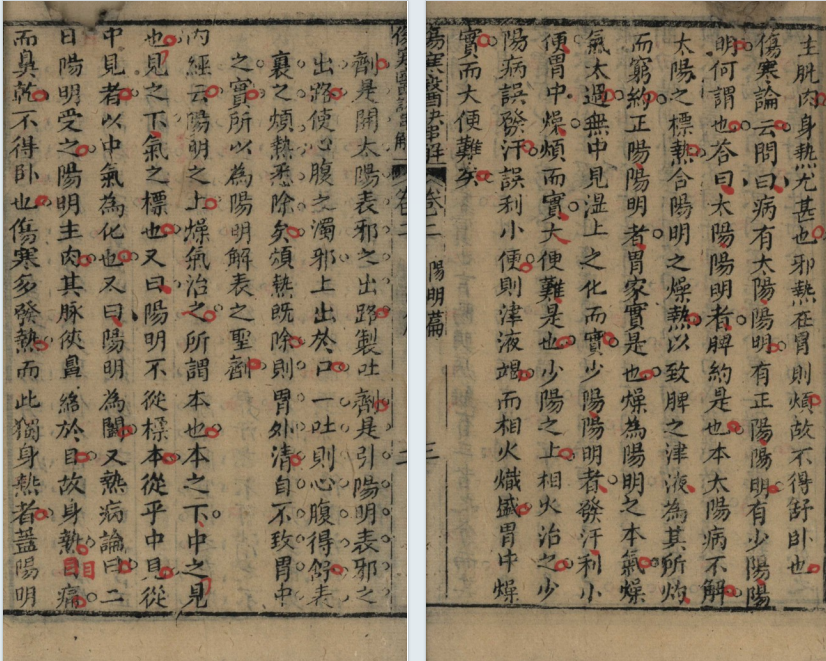 主肌肉身熱尤甚也邪熱在胃則煩故不得舒卧也
傷寒論云問曰病有太陽陽明有正陽陽明有少陽陽
明何謂也答曰太陽陽明者脾約是也本太陽病不解
太陽之標熱合陽明之燥熱以致脾之津液為其所灼
而窮約正陽陽明者胃家實是也燥為陽明之本氣燥
氣太過無中見濕土之化而實少陽陽明者發汗利小
便胃中燥煩而實大便難是也少陽之上相火治之少
陽病誤發汗誤利小便則津液竭而相火熾盛胃中燥
實而大便難矣
傷寒醫訣串解 卷二 陽明篇 三
劑是開太陽表邪之出路製吐劑是引陽明表邪之
出路使心腹之濁邪上出於口一吐則心腹得舒表
裏之煩熱悉除矣煩熱既除則胃外清自不致胃中
之實所以為陽明解表之聖劑
內經云陽明之上燥氣治之所謂本也本之下中之見
也見之下氣之標也又曰陽明不從標本從乎中見從
中見者以中氣為化也又曰陽明為闔又熱病論曰二
日陽明受之陽明主肉其脉俠鼻絡於目故身熱目痛
目
而鼻乾不得卧也傷寒多發熱而此獨身熱者蓋陽明